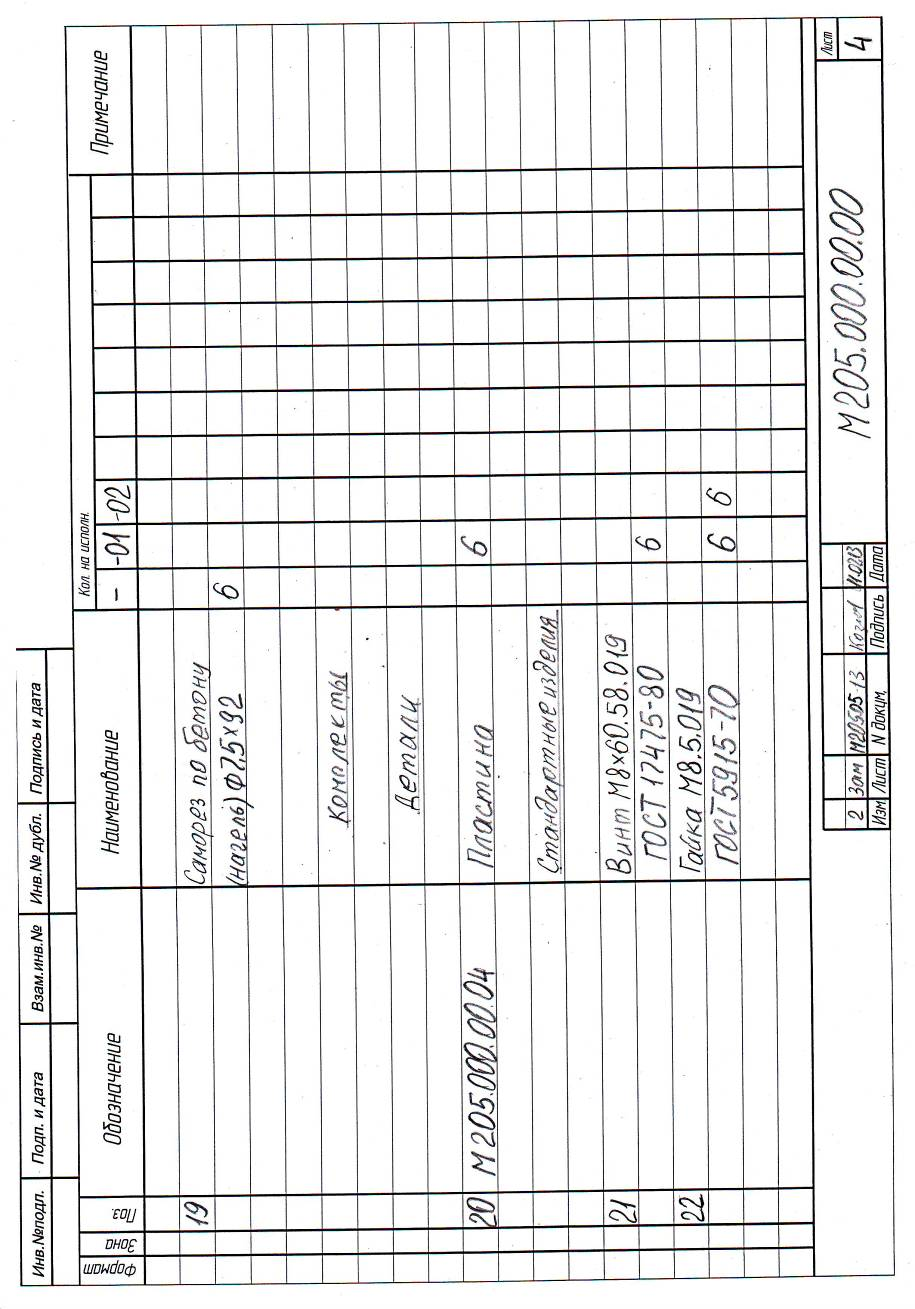 Инв.№подл. Подп. и дата Взам.инв.№ Инв.№ дубл. Подпись и дата
Формат Зона Поз. Обозначение Наименование Кол. на исполн. Примечание
- -01 -02
19 Саморез по бетону
(нагель) ф7,5х92 6
Комплекты
Детали
20 М205.000.00.04 Пластина 6
Стандартные изделия
21 Винт М8х60.58.019
ГОСТ 17475-80 6
22 Гайка М8.5.019
ГОСТ 5915-70 6 6
2 Зам М20505-13 Козлов
Изм Лист N докум. Подпись Дата
М205.000.00.00
Лист
4